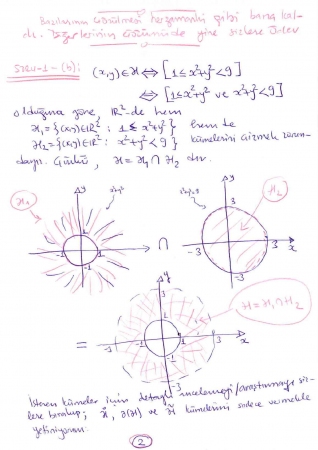 Bazılarının çözülmesi herzamanki gibi bana kal-
dı. Diğerlerinin çözümünde yine sizlere Ödev
Soru-1-(b): (x,y)∈ℋ ⟺ [1≤x²+y²<9]
⟺ [1≤x²+y² ve x²+y²<9]
olduğuna göre, ℝ²-de hem
ℋ₁ = {(x,y)∈ℝ²: 1≤x²+y²} hem de
ℋ₂ = {(x,y)∈ℝ²: x²+y²<9} kümelerini çizmek zorun-
dayız. Çünkü, ℋ = ℋ₁ ∩ ℋ₂ dir.
ℋ₁ y 1 -1 1 -1 x
∩
y 3 ℋ₂ -3 3 -3 x
=
y 3 1 -3 -1 1 3 -1 -3 x
ℋ=ℋ₁∩ℋ₂
İstenen kümeler için detaylı incelemeyi/araştırmayı siz-
lere bırakıp; ve kümelerini sadece vermekle
yetiniyorum.
2